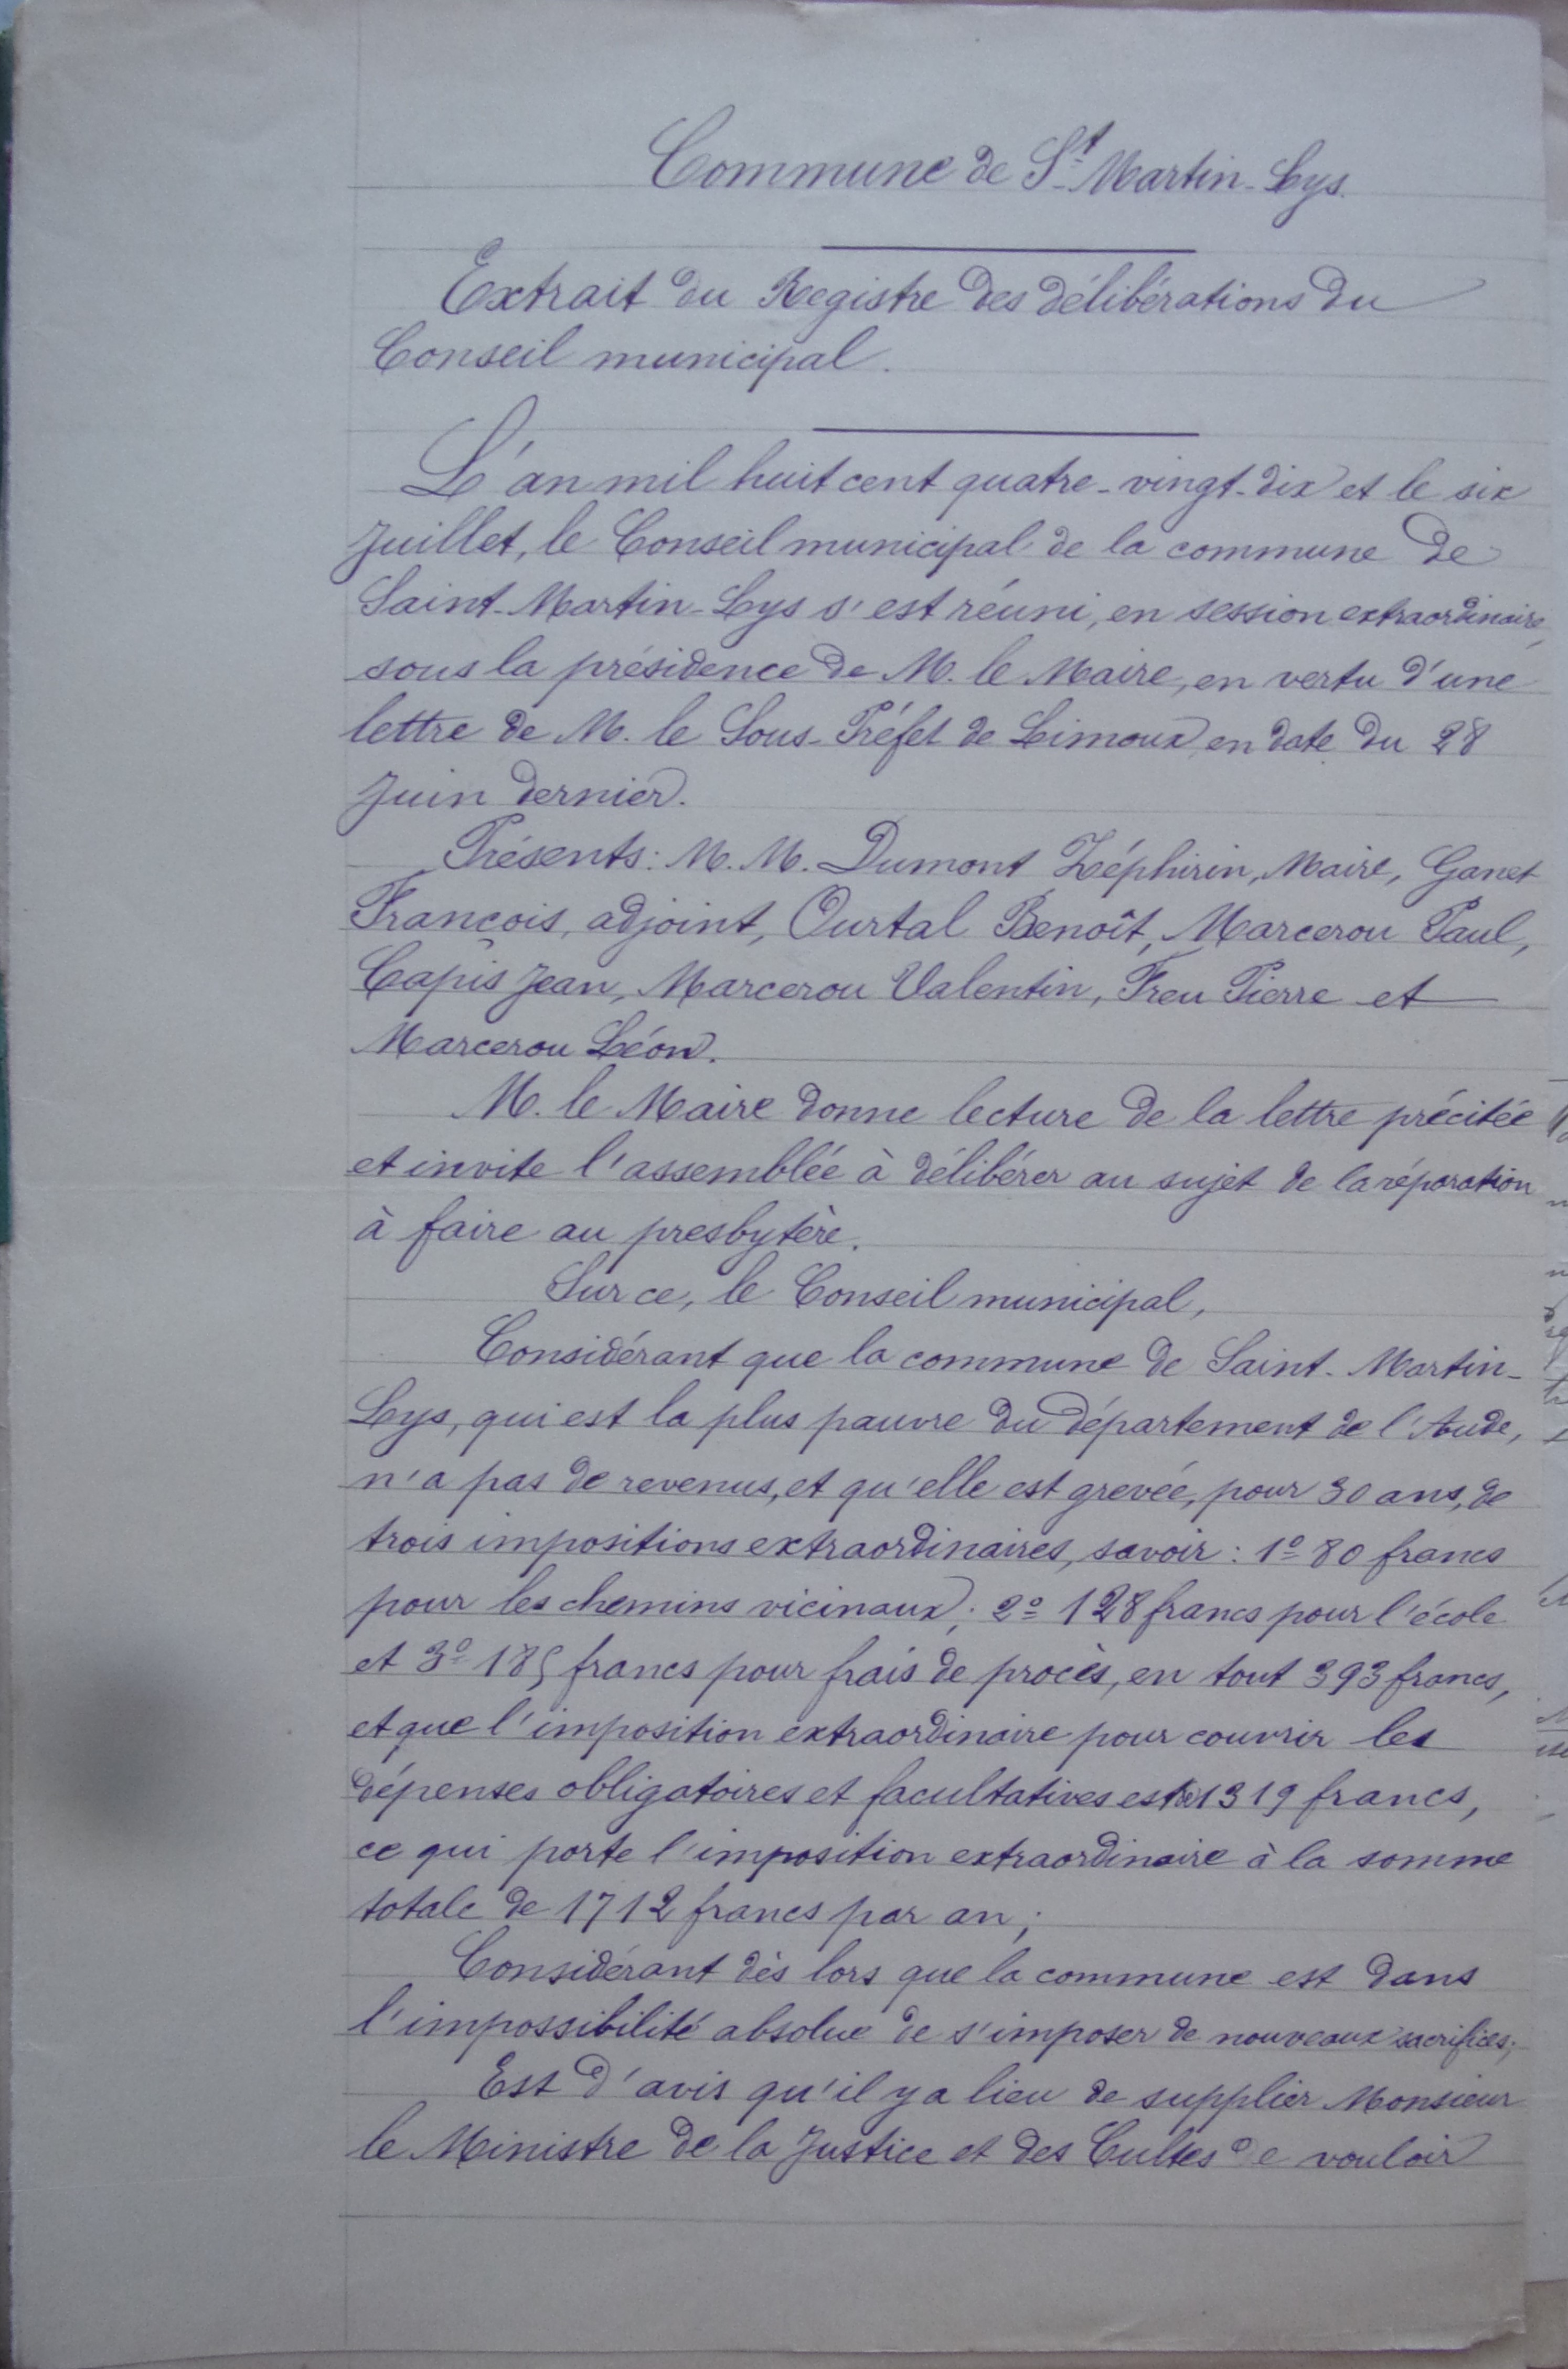 Commune de St Martin-Lys.
Extrait du Registre des délibérations du
Conseil municipal.
L'an mil huit cent quatre-vingt-dix et le six
Juillet, le Conseil municipal de la commune de
Saint-Martin-Lys s'est réuni, en session extraordinaire,
sous la présidence de M. le Maire, en vertu d'une
lettre de M. le Sous-Préfet de Limoux en date du 28
Juin dernier.
Présents: M. M. Dumont Zéphirin, Maire, Ganet
François, adjoint, Ourtal Benoît, Marcerou Paul,
Capis Jean, Marcerou Valentin, Freu Pierre et
Marcerou Léon.
M. le Maire donne lecture de la lettre précitée
et invite l'assemblée à délibérer au sujet de la réparation
à faire au presbytère.
Sur ce, le Conseil municipal,
Considérant que la commune de Saint-Martin-
Lys, qui est la plus pauvre du département de l'Aude,
n'a pas de revenus, et qu'elle est grevée, pour 30 ans, de
trois impositions extraordinaires, savoir: 1º 80 francs
pour les chemins vicinaux; 2º 128 francs pour l'école
et 3º 185 francs pour frais de procès, en tout 393 francs,
et que l'imposition extraordinaire pour couvrir les
dépenses obligatoires et facultatives est de 1319 francs,
ce qui porte l'imposition extraordinaire à la somme
totale de 1712 francs par an;
Considérant dès lors que la commune est dans
l'impossibilité absolue de s'imposer de nouveaux sacrifices;
Est d'avis qu'il y a lieu de supplier Monsieur
le Ministre de la Justice et des Cultes de vouloir